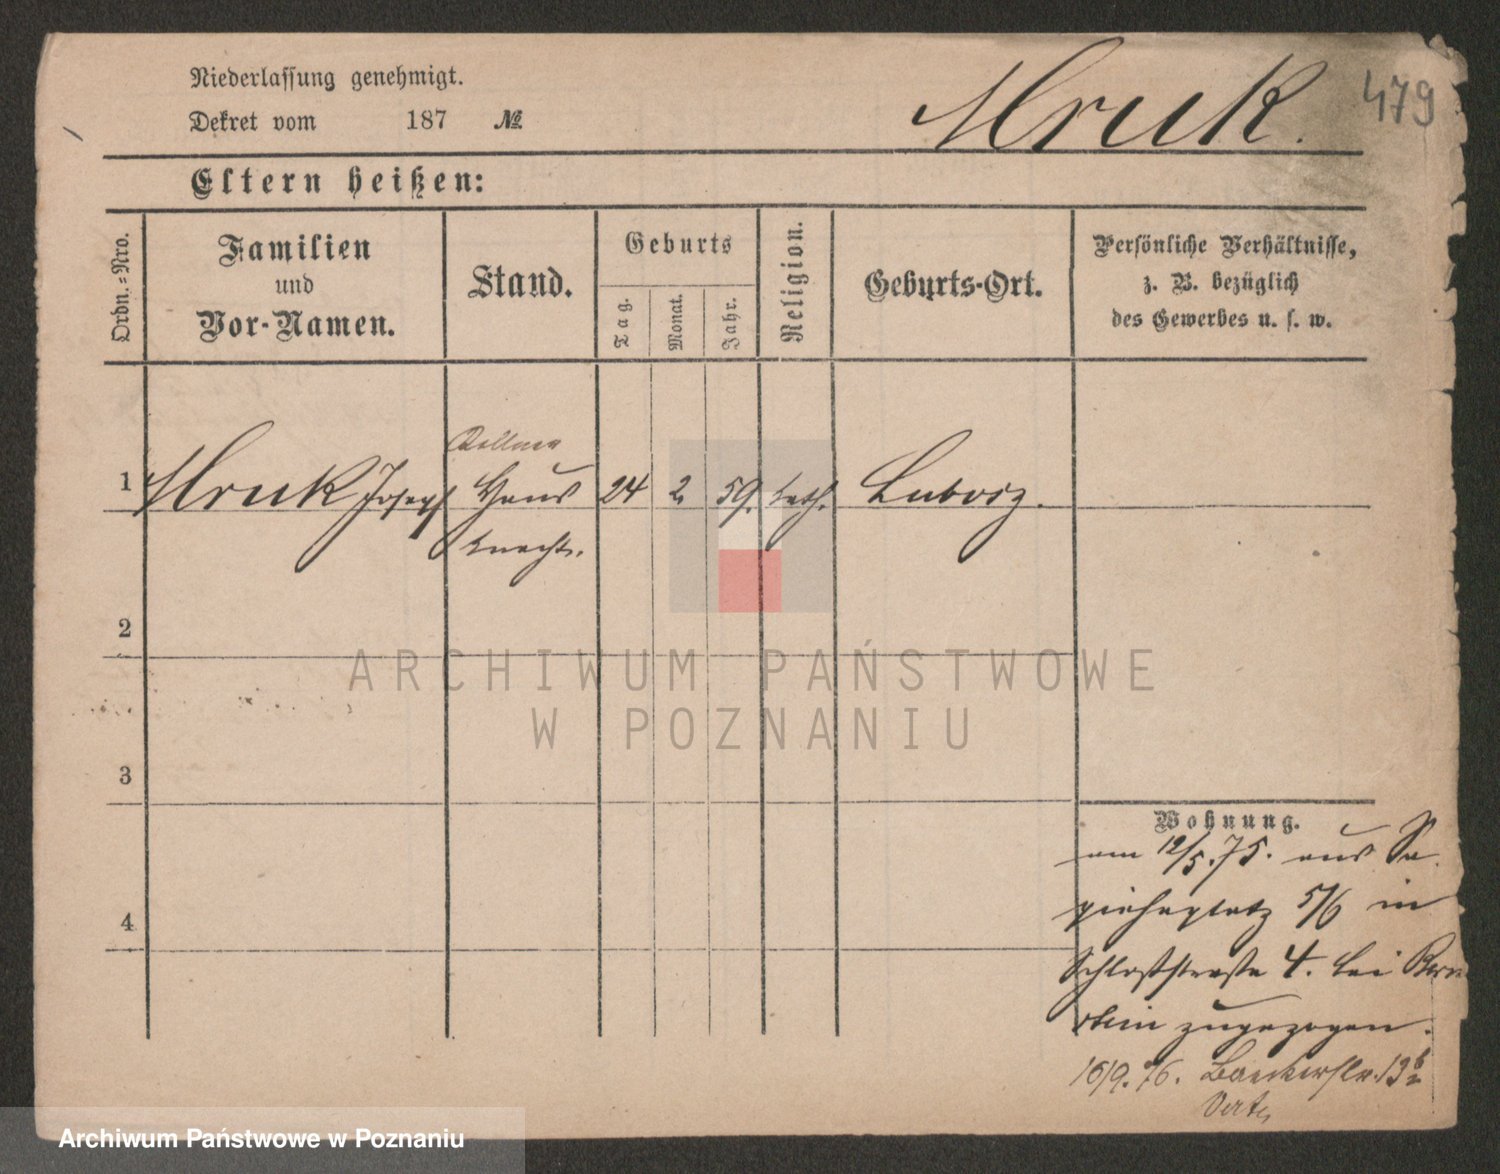 Niederlassung genehmigt.
Dekret vom 187 №
Mruk.
479
Eltern heißen:
Ordn.-Nro.
Familien
und
Vor-Namen.
Stand.
Geburts
Tag.
Monat.
Jahr.
Religion.
Geburts-Ort.
Persönliche Verhältnisse,
z. B. bezüglich
des Gewerbes u. s. w.
Kellner
1 Mruk Joseph Haus 24 2 59. kath. Lubosz.
knecht.
2
3
4
Wohnung.
am 12/5. 75. aus Sa
piehaplatz 5/6 in
Schloßstraße 4. bei
zugezogen.
16/9. 76. Baeckerstr. 13b
ARCHIWUM PAŃSTWOWE
W POZNANIU
Archiwum Państwowe w Poznaniu